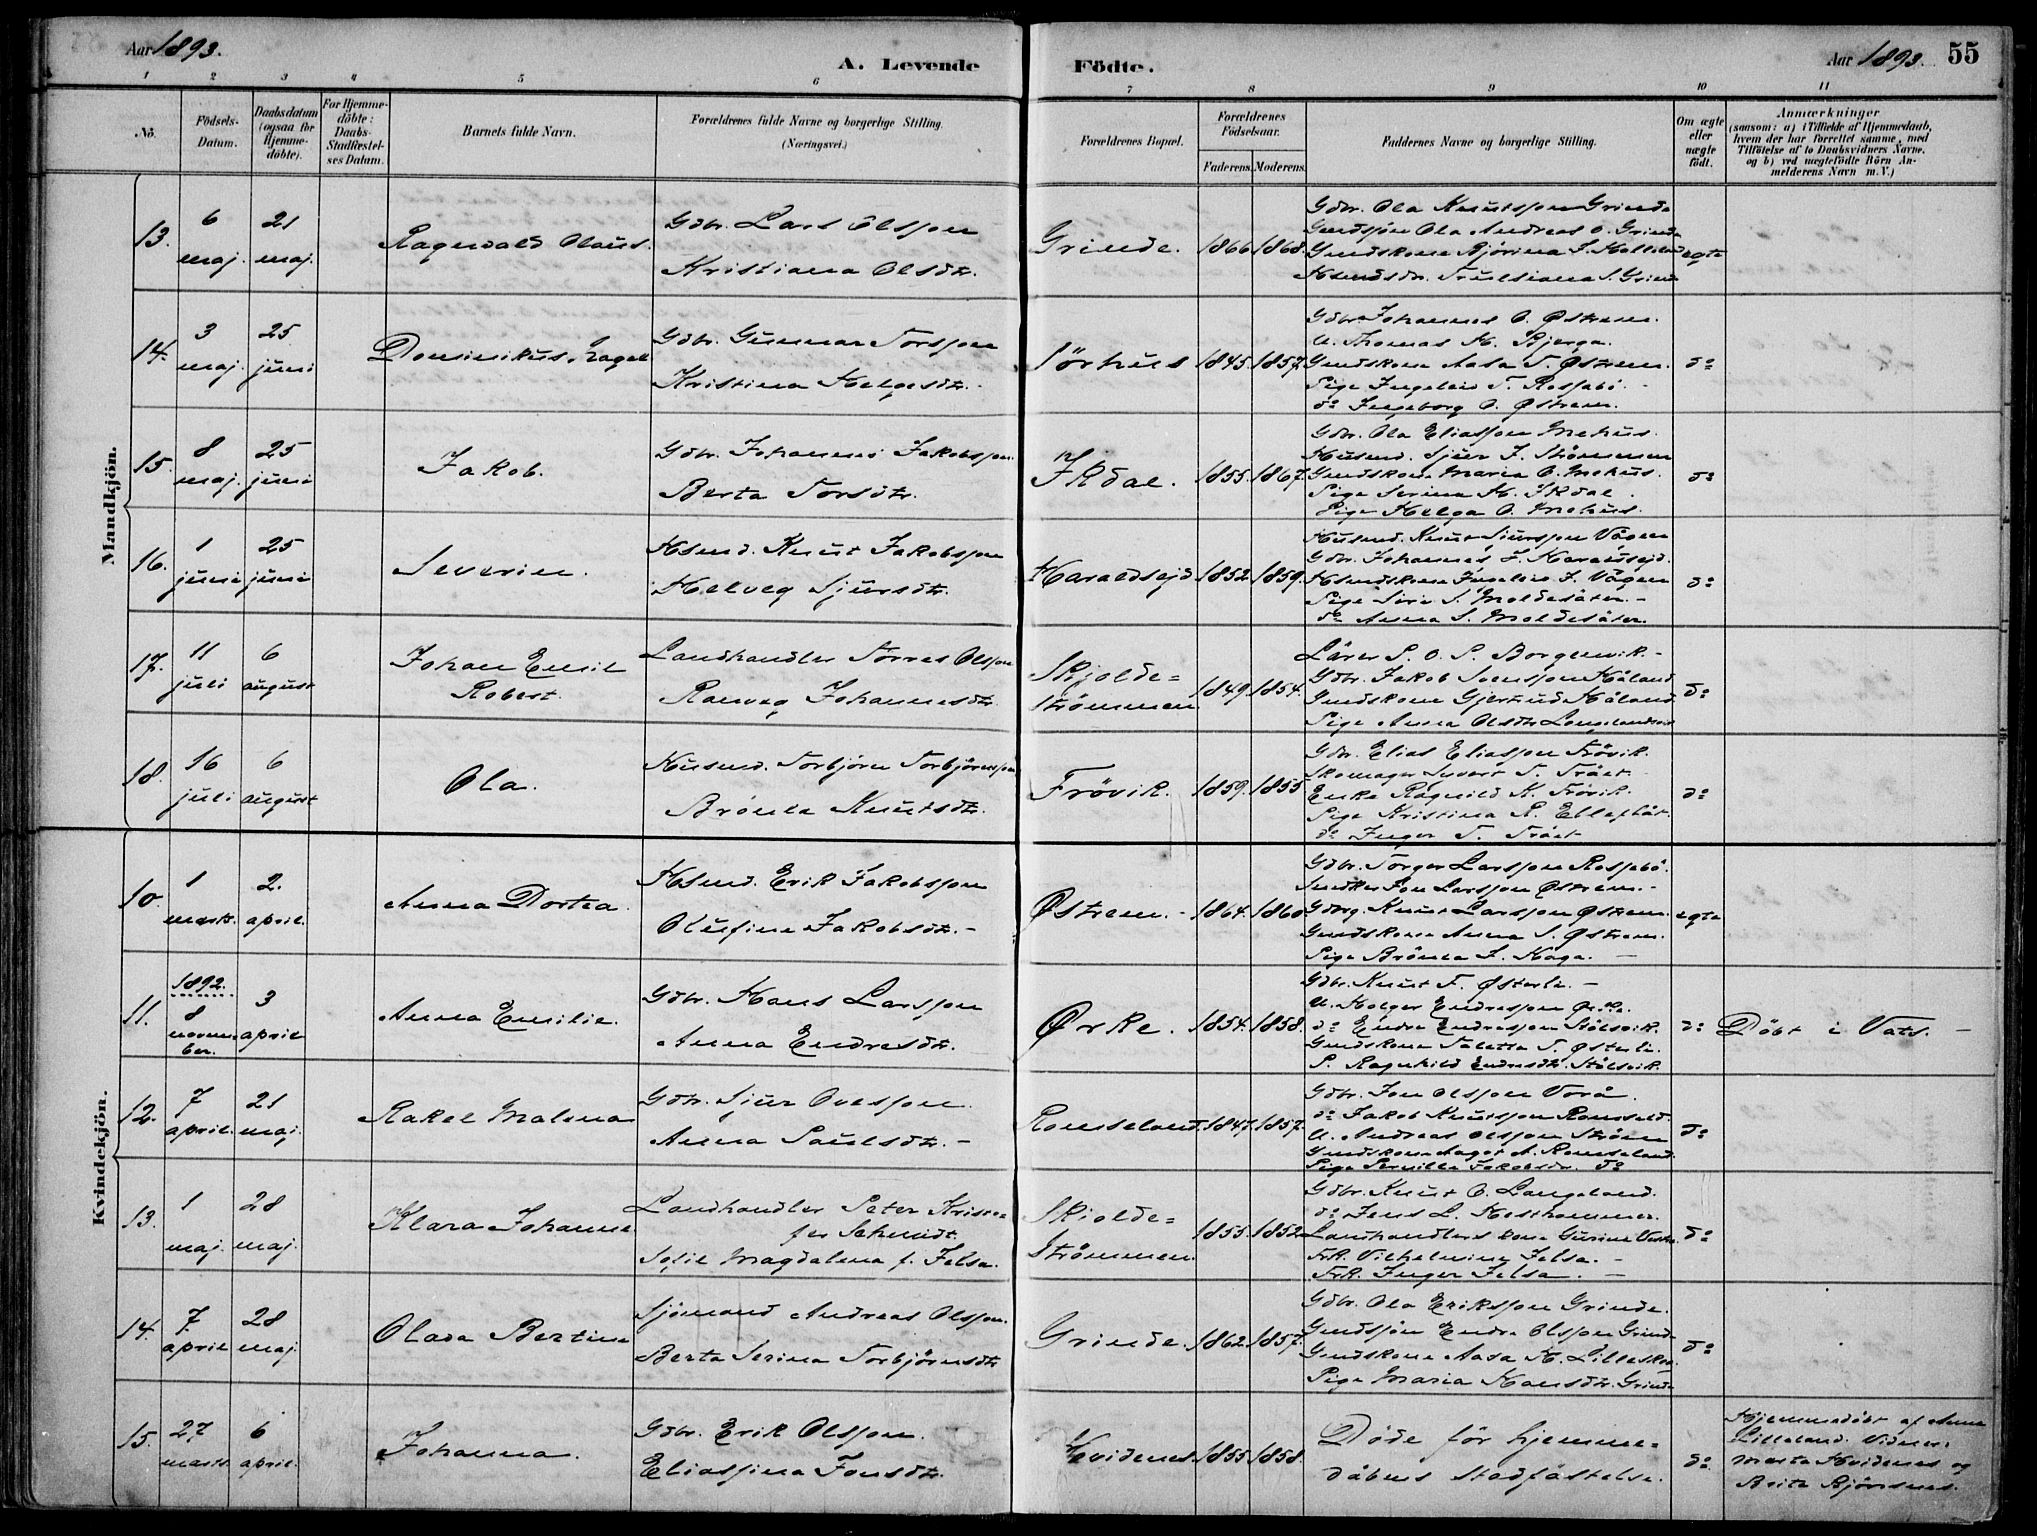 Aar 1893.
A. Levende
Födte.
Aar 1893.
55
1 2 3 4 5 6 7 8 9 10 11
No.
Födsels-Datum.
Daabsdatum (ogsaa for Hjemme-döbte).
For Hjemme-döbte: Daabs-Stadfæstel-ses Datum.
Barnets fulde Navn.
Forældrenes fulde Navne og borgerlige Stilling. (Næringsvei.)
Forældrenes Bopæl.
Forældrenes Födselsaar.
Faderens. Moderens.
Faddernes Navne og borgerlige Stilling.
Om ægte eller uægte födt.
Anmærkninger
(saasom: a) i Tilfælde af Hjemmedaab, hvem der har forrettet samme, med Tilföielse af to Daabsvidners Navne, og b) ved uægtefödte Börn An-melderens Navn m. V.)
Mandkjön.
13.
6 maj.
21 maj.
Ragnvald Olaus.
Gdbr. Lars Olsson
Kristiana Olsdtr.
Grinde.
1866 1868.
Gdbr. Ola Knutsson Grinde
Gmdssön Ola Andreas O. Grinde
Gmdskone
Hsmdsdr. Trulsiana S. Grinde
egte
14.
3 maj.
25 juni
Dominikus
Gdbr. Gunnar Torsson
Kristina Helgesdtr.
Sörhus
1845. 1857.
Gdbr. Johannes O. Østrem.
U. Thomas H. Bjerga.
Gmdskone Aasa T. Østrem.
Pige Ingeleiv T. Rossebö.
do Ingeborg O. Østrem.
do
15.
8 maj.
25 juni
Jakob.
Gdbr. Johannes Jakobsson.
Berta Torsdtr.
Ikdal.
1855. 1867.
Gdbr. Ola Eliasson Mehus.
Husmd. Sjur J. Strømmen
Gmdskone Maria O. Mehus.
Pige Serina H. Ikdal.
Pige Helga O. Mehus.
do
16.
1 juni
25 juni
Severin.
Hsmd. Knut Jakobsson
Helveg Sjursdtr.
Haraldsejd
1852. 1859.
Husmd. Knut Sjursson Vågen
Gdbr. Johannes J. Haraldsejd.
Hsmdskone Ingeleiv J. Vågen
Pige Siri S. Moldesäter.
do Anna S. Moldesäter.
do
17.
11 juli
6 august
Johan Emil
Robert.
Landhandler Torres Olsson
Ranveg Johannesdtr.
Skjolde=
strømmen
1849. 1854.
Lärer P. O. S. Borgenvik.
Gdbr. Jakob Svensson Håland
Gmdskone Gjertrud Håland
Pige Anna Olsdtr.
do
18.
16 juli
6 august
Ola.
Husmd. Torbjörn Torbjörnsson
Brönla Knutsdtr.
Frövik.
1859. 1855
Gdbr. Elias Eliasson Frövik.
Skomager Syvert T. Trået
Enke Ragnild K. Frövik.
Pige Kristina R.
do Inger T. Trået
do
Kvindekjön.
10.
1 marts.
2. april.
Anna Dortea.
Hsmd. Erik Jakobsson
Olufine Jakobsdtr.
Østrem.
1864. 1860
Gdbr. Törger Larsson Rossebö.
Snedker Jon Larsson Østrem.
Gdbrg. Knut Larsson Østrem.
Gmdskone Anna S. Østrem.
Pige Brönla J. Haga.
egte
11.
1892.
8 november.
3 april
Anna Emilie.
Gdbr. Hans Larsson
Anna Endresdtr.
Ørke.
1854. 1858.
Gdbr. Knut T. Østerli.
U. Holger Endresson Ørke.
do Endre Endresson Stölsvik.
Gmdskone Taletta T. Østerli.
P. Ragnhild Endresdtr. Stölsvik
do
Döbt i Vats.
12.
7 april.
21 maj.
Rakel Malena
Gdbr. Sjur Ovesson.
Anna Paulsdtr.
Romseland.
1847. 1857.
Gdbr. Jon Olsson Vorå.
do Jakob Knutsson Romseld.
U. Andreas Olsson Ström
Gmdskone Aagot A. Romseland.
Pige Pernilla Jakobsdr. do
do
13.
1 maj.
28 maj.
Klara Johanna
Landhandler Peter Kristo=
fer Schmidt.
Sofie Magdalena f. Jelsa.
Skjolde=
strømmen.
1855. 1852.
Gdbr. Knut O. Langeland.
do Jens L. Hesthammer.
Landhandlers kone Gurine
Frk. Vilhelmine Jelsa.
Frk. Inger Jelsa.
do
14.
7. april
28 maj.
Olava Bertina
Sjömand Andreas Olsson.
Berta Serina Torbjörnsdtr.
Grinde.
1862. 1857.
Gdbr. Ola Eriksson Grinde.
Gmdssön Endre Olsson Grinde
Gmdskone Aasa H. Lilleskog
Pige Maria Hansdtr. Grinde
do
15.
27 marts.
6 april.
Johanna.
Gdbr. Erik Olsson.
Eliassina Jonsdtr.
Hvidenes.
1855. 1858.
Döde för hjemme=
dåbens Stadfästelse.
do
Hjemmedöbt af Anna
Lilleland. Vidner:
Marta Hvidenes og
Brita Björsnes.